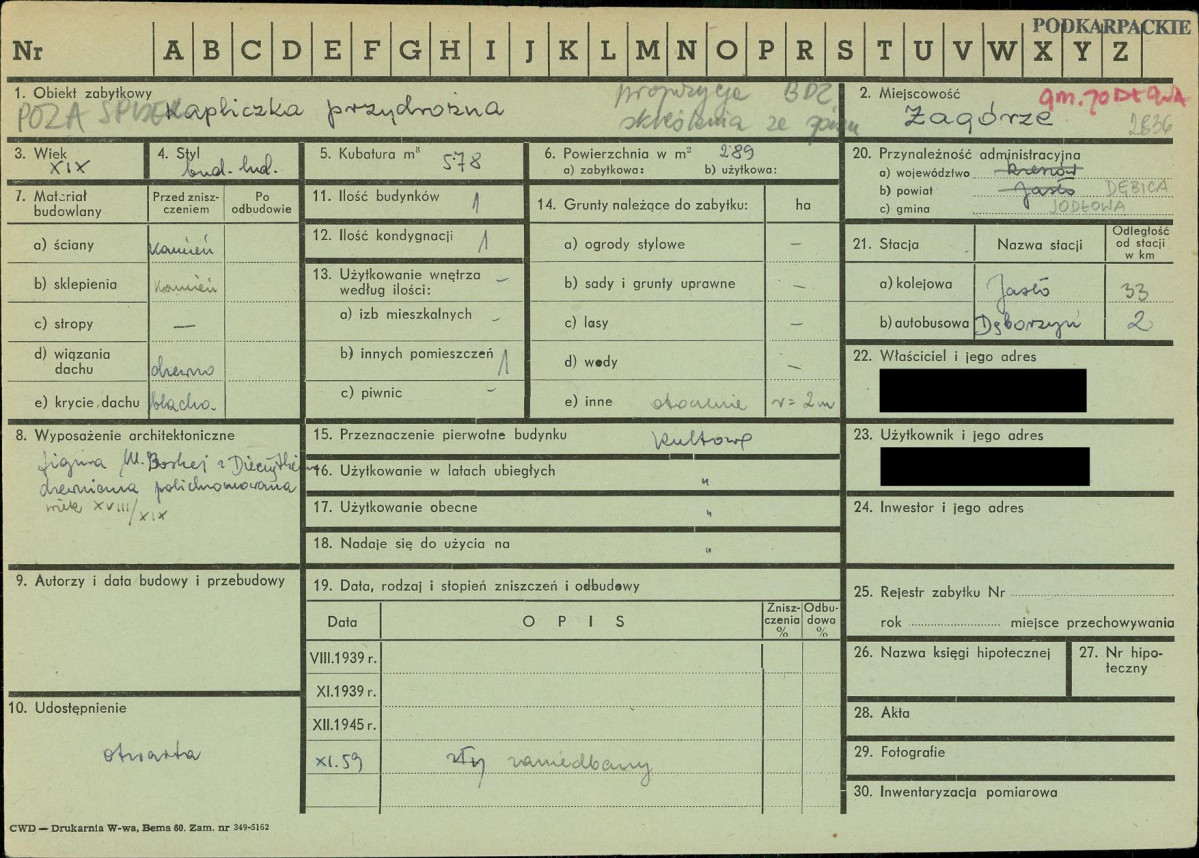 PODKARPACKIE
Nr A B C D E F G H I J K L M N O P R S T U V W X Y Z
1. Obiekt zabytkowy
POZA SPISEM
Kapliczka przydrożna
propozycja BDZ
skreślenia ze spisu
2. Miejscowość
gm. JODŁOWA
Zagórze
2836
3. Wiek
XIX
4. Styl
bud. lud.
5. Kubatura m³ 578
6. Powierzchnia w m² 289
a) zabytkowa: b) użytkowa:
20. Przynależność administracyjna
a) województwo kresnów
b) powiat Jasło DĘBICA
c) gmina JODŁOWA
7. Materiał budowlany
Przed zniszczeniem
Po odbudowie
a) ściany kamień
b) sklepienia kamień
c) stropy —
d) wiązania dachu drewno
e) krycie dachu blacha
11. Ilość budynków 1
12. Ilość kondygnacji 1
13. Użytkowanie wnętrza według ilości: –
a) izb mieszkalnych –
b) innych pomieszczeń 1
c) piwnic –
14. Grunty należące do zabytku: ha
a) ogrody stylowe –
b) sady i grunty uprawne –
c) lasy –
d) wody –
e) inne otoczenie r = 2 m
21. Stacja
Nazwa stacji
Odległość od stacji w km
a) kolejowa Jasło 33
b) autobusowa Dęborzyn 2
22. Właściciel i jego adres
8. Wyposażenie architektoniczne
figura M. Boskej z Dieciątkiem
drewniana polichromowana
wiek XVIII/XIX
15. Przeznaczenie pierwotne budynku kultowe
16. Użytkowanie w latach ubiegłych "
17. Użytkowanie obecne "
18. Nadaje się do użycia na "
23. Użytkownik i jego adres
24. Inwestor i jego adres
9. Autorzy i data budowy i przebudowy
19. Data, rodzaj i stopień zniszczeń i odbudowy
Data
OPIS
Zniszczenia %
Odbudowa %
VIII.1939 r.
XI.1939 r.
XII.1945 r.
XI.59 zły zaniedbany
10. Udostępnienie
otwarta
25. Rejestr zabytku Nr
rok miejsce przechowywania
26. Nazwa księgi hipotecznej
27. Nr hipoteczny
28. Akta
29. Fotografie
30. Inwentaryzacja pomiarowa
CWD — Drukarnia W-wa, Bema 60. Zam. nr 349-5162